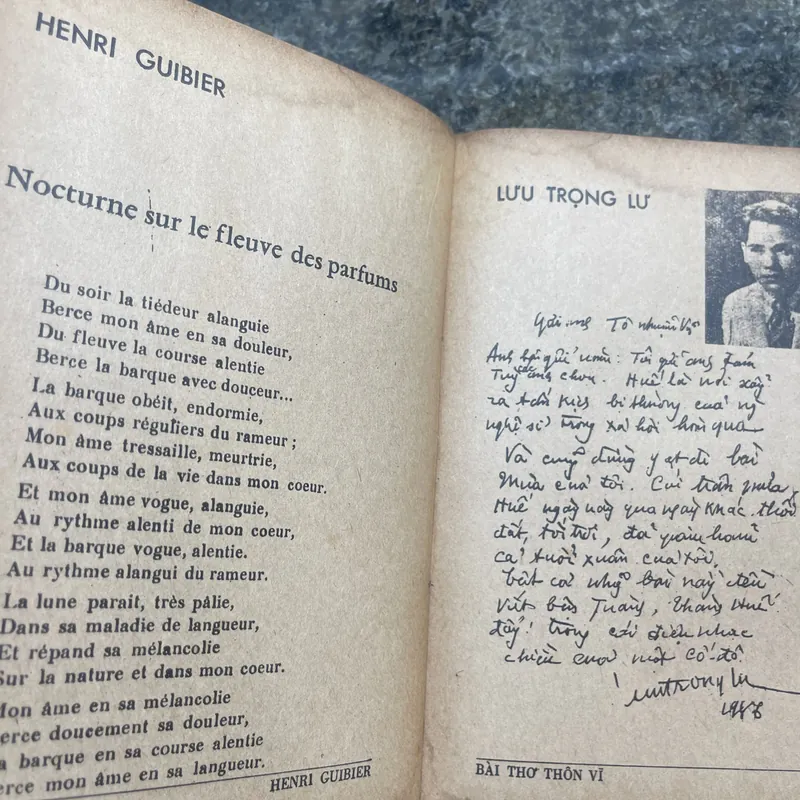 HENRI GUIBIER
Nocturne sur le fleuve des parfums
Du soir la tiédeur alanguie
Berce mon âme en sa douleur,
Du fleuve la course alentie
Berce la barque avec douceur...
La barque obéit, endormie,
Aux coups réguliers du rameur ;
Mon âme tressaille, meurtrie,
Aux coups de la vie dans mon coeur.
Et mon âme vogue, alanguie,
Au rythme alenti de mon coeur,
Et la barque vogue, alentie.
Au rythme alangui du rameur.
La lune parait, très pâlie,
Dans sa maladie de langueur,
Et répand sa mélancolie
Sur la nature et dans mon coeur.
Mon âme en sa mélancolie
erce doucement sa douleur,
a barque en sa course alentie
erce mon âme en sa langueur.
HENRI GUIBIER
LƯU TRỌNG LƯ
Gửi anh Tô
Anh hãy gửi : Tôi gửi anh
Tuỳ anh chọn. Huế là nơi xảy
ra tấn kịch bi thương của
nghệ sĩ trong xã hội hôm qua
Và cũng đừng đi bài
Mưa của tôi. Cái trận mưa
Huế ngày này qua ngày khác, thối
đất, tối trời, đã
cả tuổi xuân của tôi.
tất cả những bài này đều
viết bên Tràng, Huế
đấy! trong cái điệu nhạc
chiều của một cố-đô.
BÀI THƠ THÔN VĨ